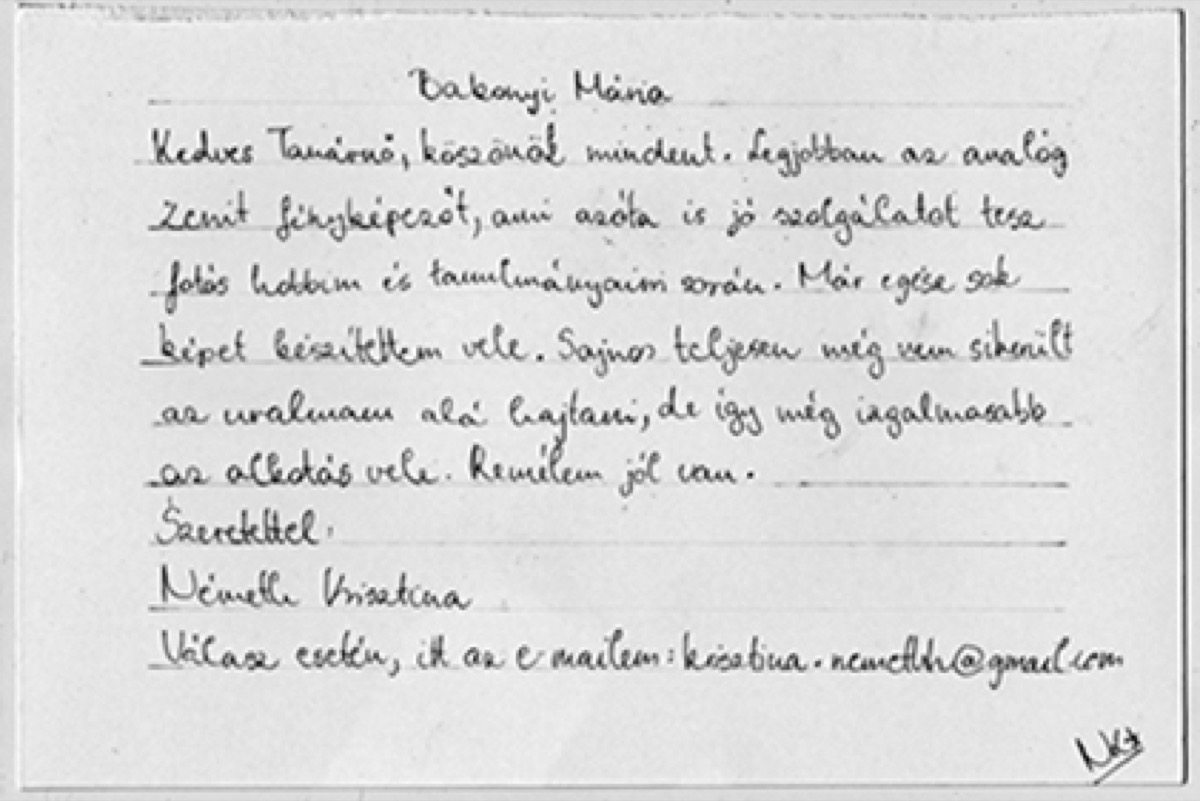 Bakonyi Mária
Kedves Tanárnő, köszönök mindent. Legjobban az analóg
Zenit fényképezőt, ami azóta is jó szolgálatot tesz
fotós hobbim és tanulmányaim során. Már egész sok
képet készítettem vele. Sajnos teljesen még nem sikerült
az uralmam alá hajtani, de így még izgalmasabb
az alkotás vele. Remélem jól van.
Szeretettel:
Németh Krisztina
Válasz esetén, itt az e mailem: